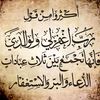 أكثروا من قول
رب اغفر لي ولوالدي
فإنها تجمع بين ثلاث عبادات
الدعاء والبر والاستغفار